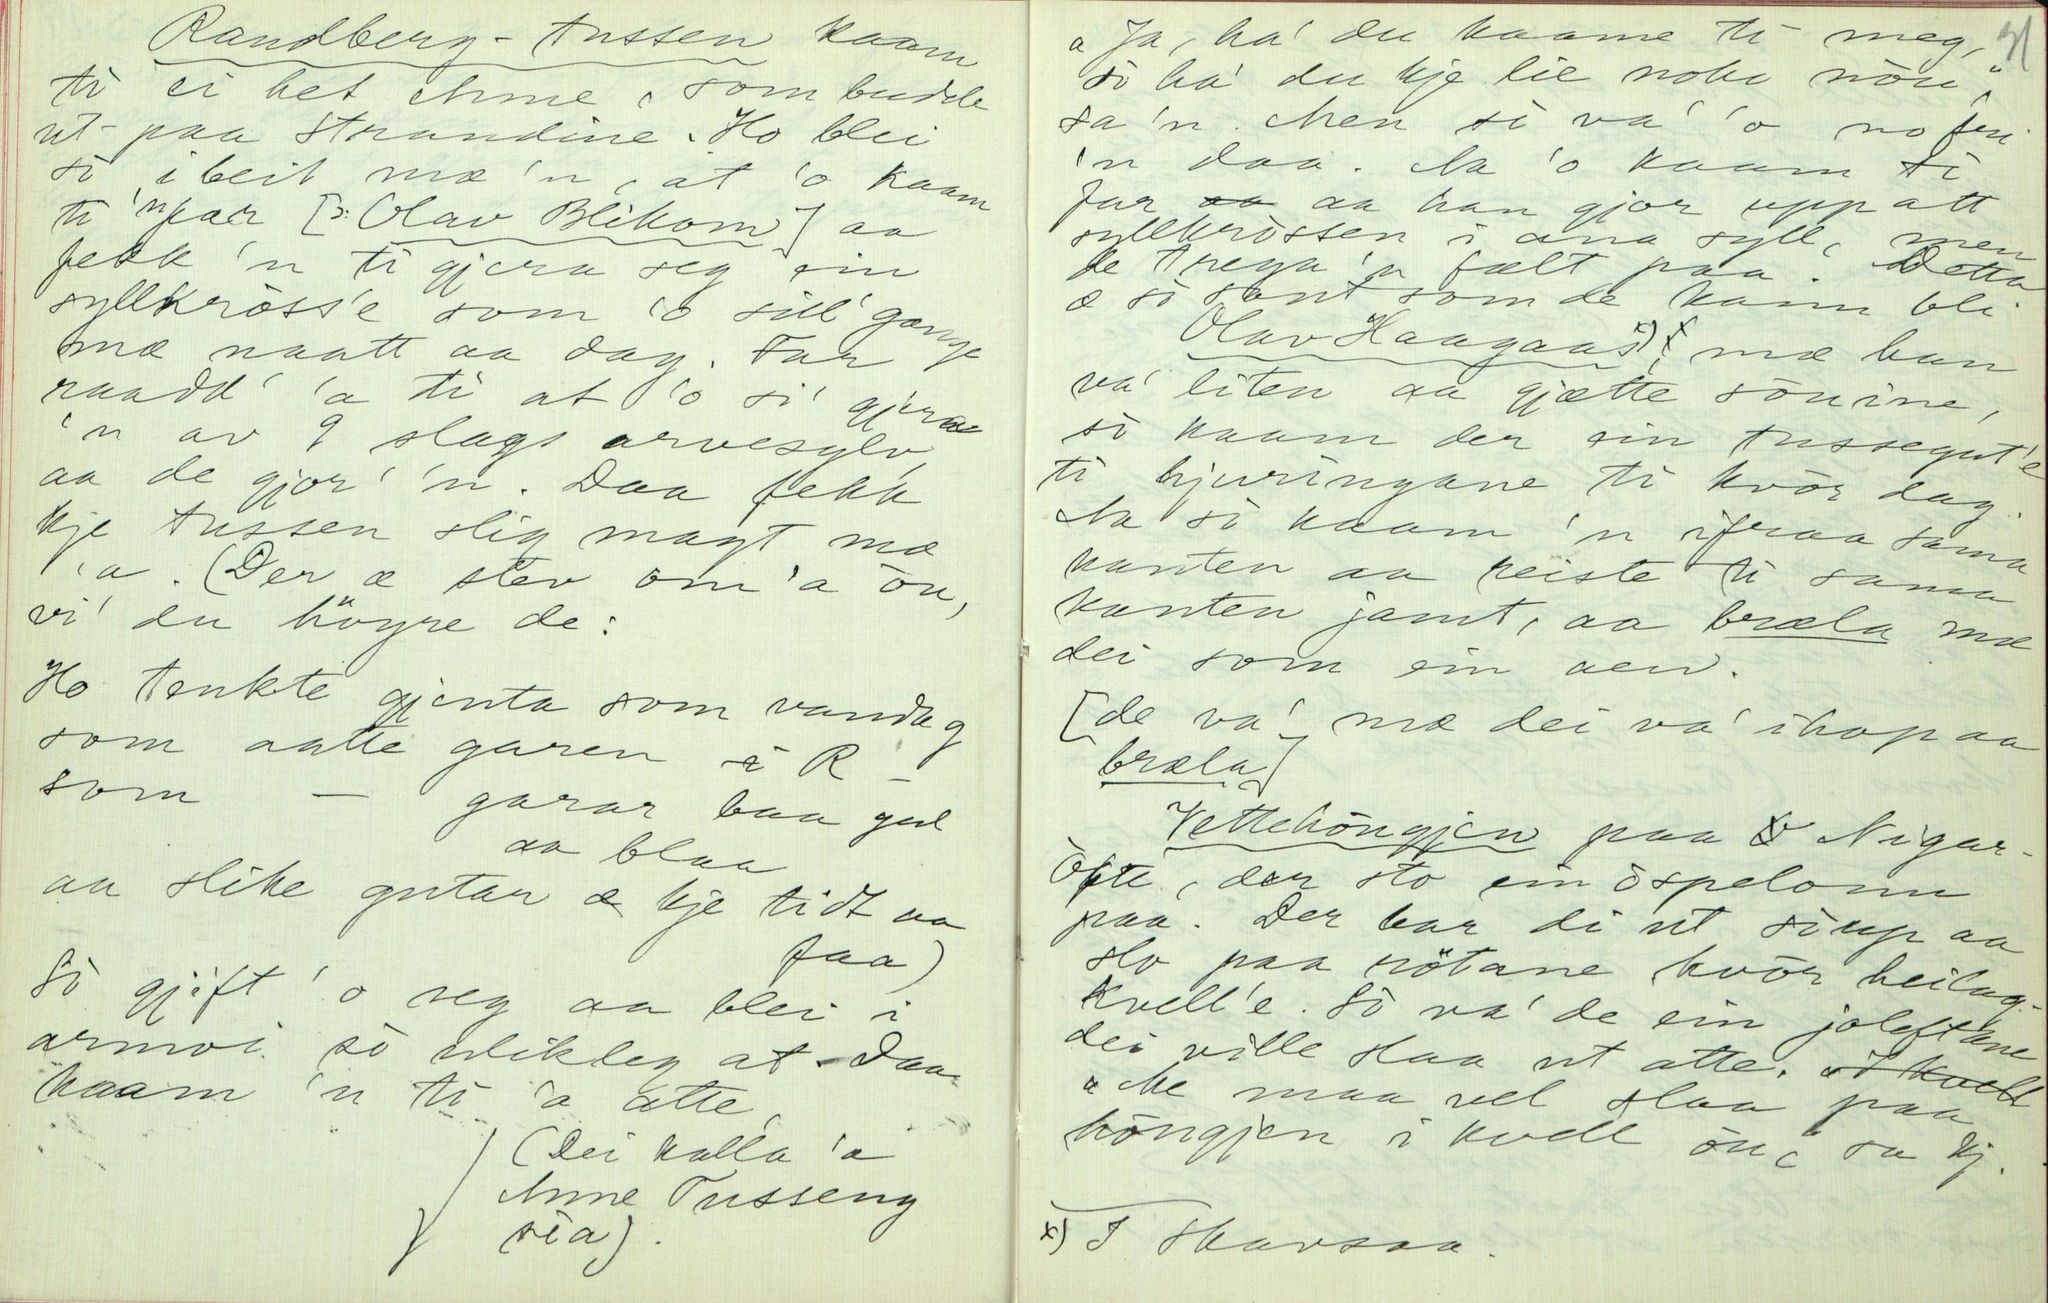 Randberg-tussen kaam
ti ei het Anne, som budde
ut-paa Strandine. Ho blei
sò ibeit mæ 'n, at 'o kaam
ti 'n far [ɔ: Olav Blikom] aa
fekk 'n ti gjera seg ein
syllkròss'e som 'o sill' gange
mæ naatt aa dag. Far
raadd' 'a ti at 'o si' gjera
'n av 9 slags arvesylv,
aa de gjor' 'n. Daa fekk
kje tussen slig magt mæ
'a. (Der æ stev om 'a òu,
vi' du höyre de:
Ho tenkte gjenta som vandag
som aatte garen i R —
som — garar baa gul
aa blaa
aa slike gutar æ kje tidt aa
faa)
Sò gjift' 'o seg aa blei i
armoi sò ulikleg at. Daa
kaam 'n ti 'a atte,
(Dei kalla 'a
Anne Tusseng
sia).
31
"Ja, ha' du kaame ti meg,
sò ha' du kje lie noko nòu,"
sa 'n. Men sò va' 'o no fri
'n daa. Aa 'o kaam ti
far aa aa han gjor upp att
syllkròssen i ana syll, men
de trega 'n fælt paa. Detta
æ sò sant som de kann bli.
Olav Haagaas x), mæ han
va' liten aa gjætte sòuine,
sò kaam der ein tussegut'e
ti hjuringane ti kvòr dag.
Aa sò kaam 'n ifraa sama
kanten aa reiste ti sama
kanten jamt, aa bræla mæ
dei som ein aen.
[de va' mæ dei va' ihop aa
bræla]
Vettehòngjen paa Nigar-
òfte, der sto ein òspelonn
paa. Der bar di ut sòup aa
slo paa rötane kvòr heilag-
kvell'e. Sò va' de ein joleftane
dei ville slaa ut atte. sò kvell
"Me maa vel slaa paa
hòngjen i kvell òu, sa kj.
x) I Skarsaa.